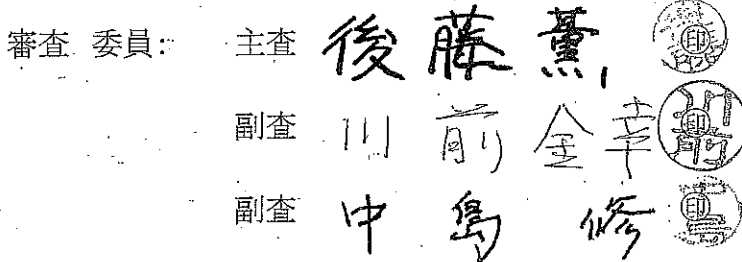 審査 委員: 主査 後藤 薫 印
副査 川前 金幸 印
副査 中島 修 印